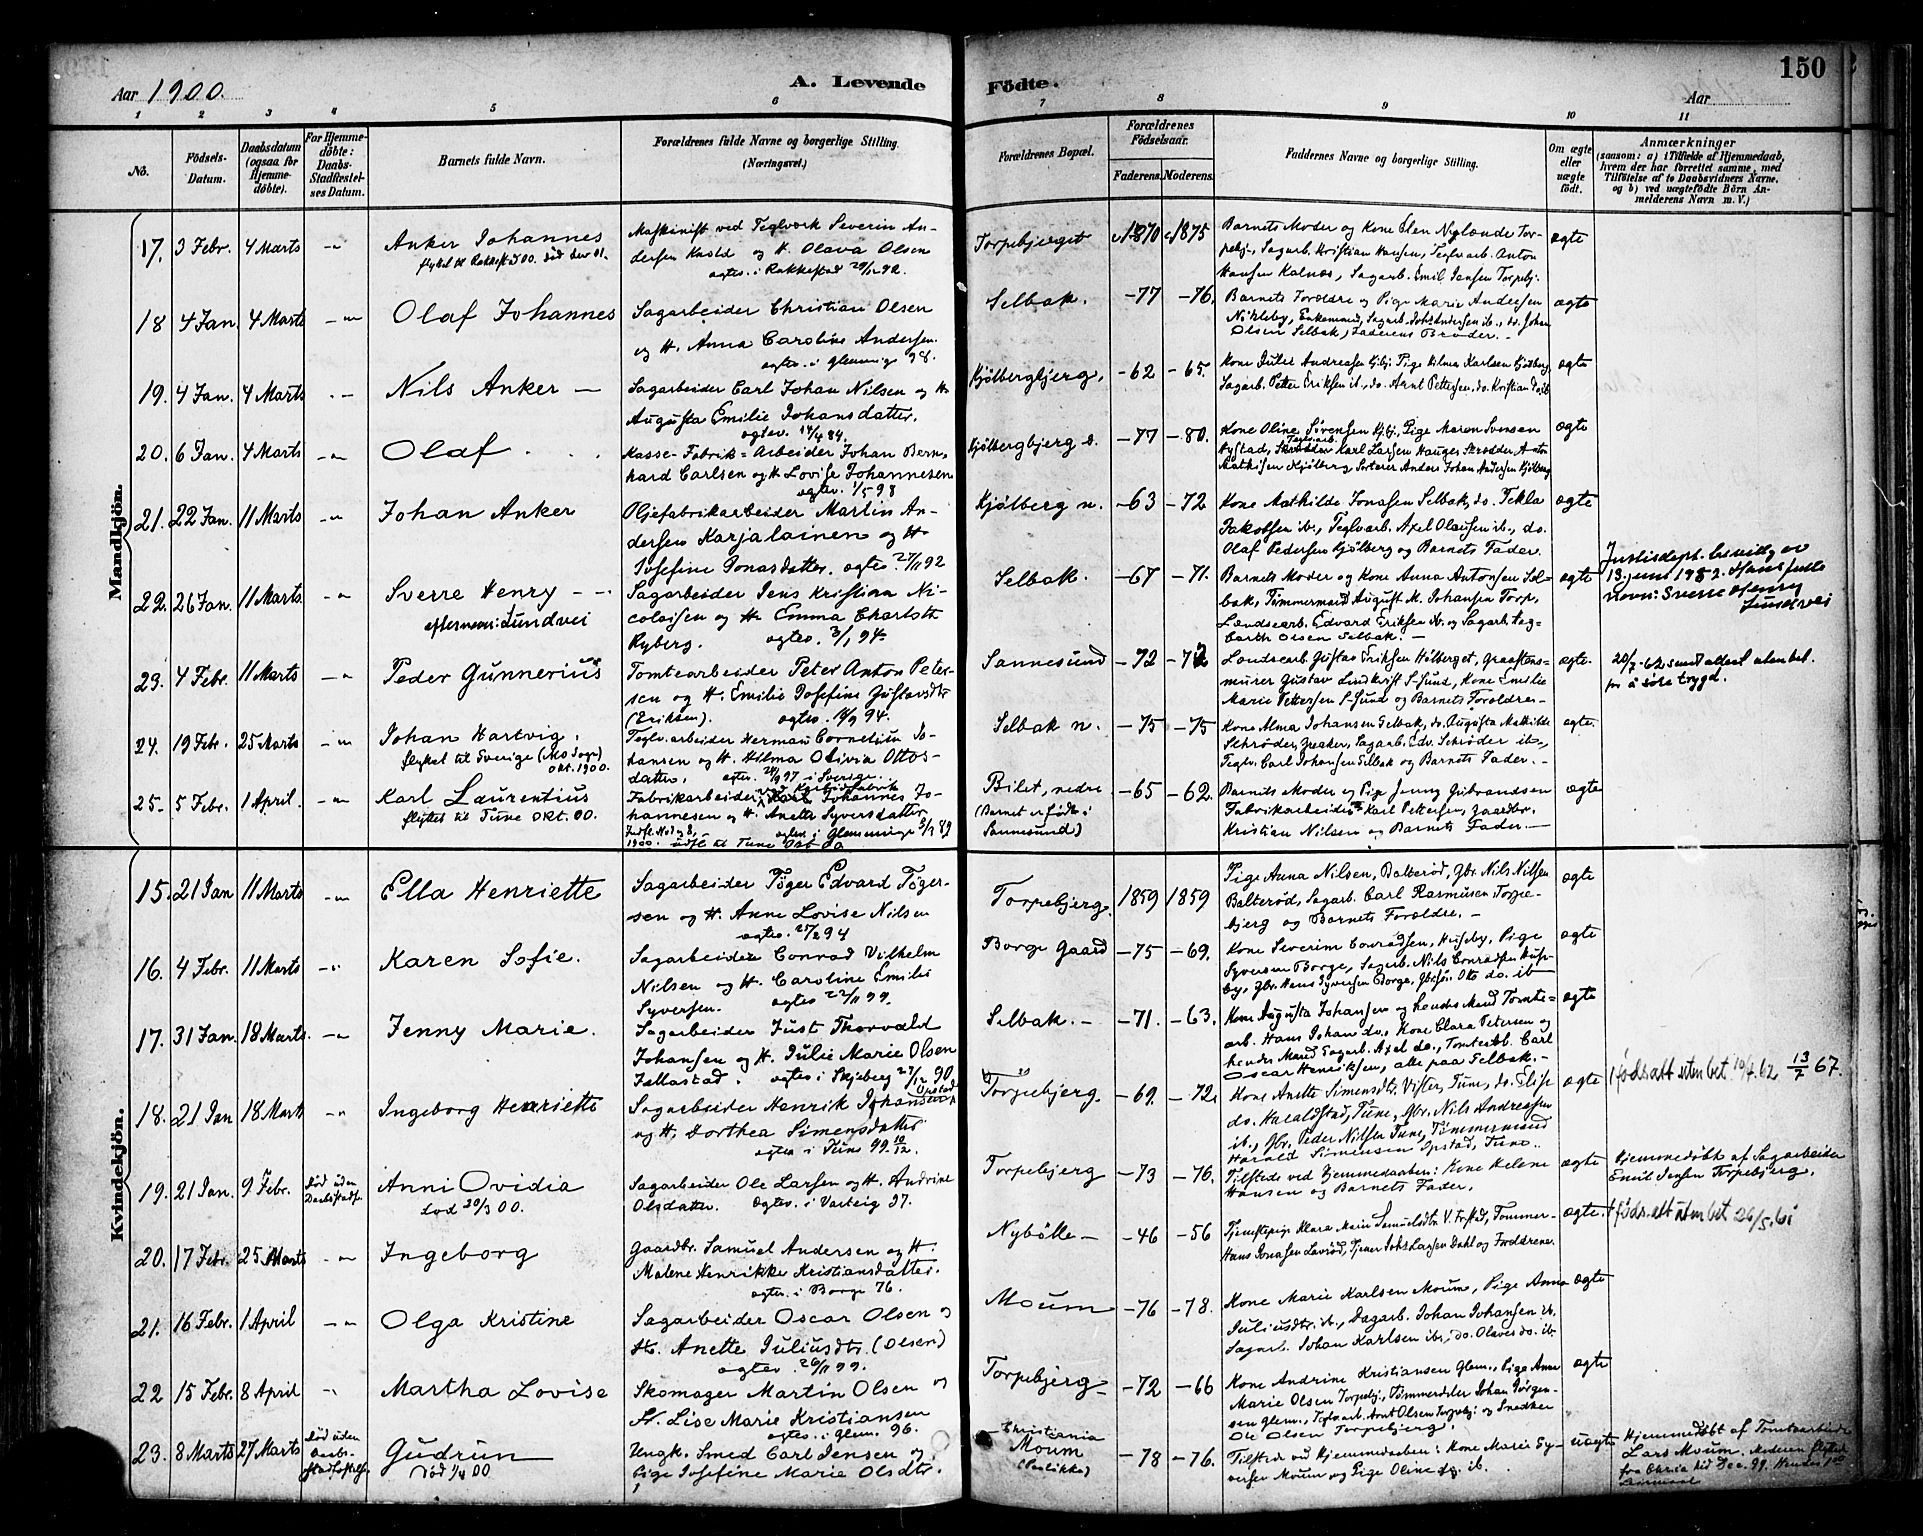 150
Aar 1900.
A. Levende Födte.
Aar
1 2 3 4 5 6 7 8 9 10 11
No.
Födsels-Datum.
Daabsdatum (ogsaa for Hjemmedöbte).
For Hjemmedöbte: Daabs-Stadfæstelses Datum.
Barnets fulde Navn.
Forældrenes fulde Navne og borgerlige Stilling. (Næringsvei.)
Forældrenes Bopæl.
Forældrenes Födselsaar.
Faderens. Moderens.
Faddernes Navne og borgerlige Stilling.
Om ægte eller uægte födt.
Anmærkninger (saasom: a) i Tilfælde af Hjemmedaab, hvem der har forrettet samme, med Tilföielse af to Daabsvidners Navne, og b) ved uægtefödte Börn Anmelderens Navn m. V.)
Mandkjön.
17. 3 Febr. 4 Marts Anker Johannes
Maskinist ved Teglværk Severin Andersen og H. Olava Olsen
ægtev. i Rakkestad
Torpebjerget 1870 1875
Barnets Moder og Kone Elen Nylænde Torpebj., Sagarb. Kristian Hansen, Teglv.arb. Anton Hansen Kalnæs, Sagarb. Emil Jensen Torpebj.
ægte
18 4 Jan. 4 Marts Olaf Johannes
Sagarbeider Christian Olsen
og H. Anna Caroline Andersen.
ægtev. i Glemminge 98.
Selbak. -77 -76.
Barnets Forældre og Pige Marie Andersen
Olsen Selbak, Faderens Broder.
ægte
19. 4 Jan. 4 Marts Nils Anker
Sagarbeider Carl Johan Nilsen og H.
Augusta Emilie Johansdatter.
ægtev. 14/4 84.
Kjølbergbjerg, -62 -65
Sagarb. Petter Eriksen ib., do. Arnt Pettersen, do. Kristian do. ib
ægte
20. 6 Jan. 4 Marts Olaf
Kasse-Fabrik-Arbeider Johan Bernhard Carlsen og H. Lovise Johannesen
ægtev. 1/5 98
Kjølbergbjerg -77 -80.
Kone Oline Sørensen Kjbj., Pige Maren Svensen
Mathisen Kjølberg, Sorterer Anders Johan Andersen Kjølberg
ægte
21. 22 Jan. 11 Marts Johan Anker
Oljefabrikarbeider Martin Andersen Karjalainen og H.
Josefine Jonasdatter. ægtev 27/11 92
Kjølberg n. -63 -72
Kone Mathilde Jonasen Selbak, do. Tekla
Jakobsen ib., Teglv.arb. Axel Olausen ib., do.
Olaf Pedersen Kjølberg og Barnets Fader.
ægte
22. 26 Jan. 11 Marts. Sverre Henry
efternavn: Lundvei
Sagarbeider Jens Kristian Nicolaisen og H. Emma Charlotte
Ryberg. ægtev. 3/1 94.
Selbak. -67 -71.
Barnets Moder og Kone Anna Antonsen Selbak, Tømmermand August M. Johansen Torp,
Landsearb. Edvard Eriksen ib. og Sagarb. Ingbarth Olsen Selbak.
ægte
Justisdept. bevilling av 13. juni 1952. Hans fulde navn: Sverre Henry Lundvei
23. 4 Febr. 11 Marts Peder Gunnerius
Tomtearbeider Peter Anton Petersen og H. Emilie Josefine Gustavsdtr
(Eriksen). ægtev. 94.
Sannesund -72 -72
Landsearb. Gustav Eriksen
murer Gustav Lindkvist S-Sund, Kone Emilie
Marie Pettersen S-Sund og Barnets Forældre
ægte.
24. 19 Febr. 25 Marts Johan Hartvig.
flyttet til Sverige (Mo Sogn) Okt. 1900.
Teglv.arbeider Herman Cornelius Johansen og H. Hilma Olivia Ottosdatter. 97 i Sverige.
Selbak n. -75 -75
Kone Alma Johansen Selbak, do. Augusta Mathilde
Schrøder, Greaker, Sagarb. Edv. Schrøder ib.,
Teglv. Carl Johansen Selbak og Barnets Fader.
ægte.
25. 5 Febr. 1 April. Karl Laurentius
flyttet til Tune Okt. 00.
Fabrikarbeider Johannes Johannesen og H. Anette Syversdatter
ægtev. i Glemminge 89
Bilet, nedre
(Barnet er født i Sannesund)
-65 -62.
Barnets Moder og Pige Jenny Gulbrandsen
Fabrikarbeider Karl Pettersen, Gaardbr.
Kristian Nilsen og Barnets Fader.
ægte
Kvindekjön.
15. 21 Jan 11 Marts Ella Henriette
Sagarbeider Tøger Edvard Tøgersen og H. Anne Lovise Nilsen
ægtev. 27/2 94
Torpebjerg. 1859 1859
Pige Anna Nilsen, Balterød, Gbr. Nils Nilsen
Balterød, Sagarb. Carl Rasmusen Torpebjerg og Barnets Forældre.
ægte
16. 4 Febr. 11 Marts Karen Sofie.
Sagarbeider Conrad Vilhelm
Nilsen og H. Caroline Emilie
Syversen. ægtev 22/11 99.
Borge Gaard -75 -69.
Kone Severine Conradsen, Huseby, Pige
Syversen Borge, Sagarb. Nils Conradsen Huseby, Gbr. Hans Syversen Borge, Otto do. ib
ægte
17. 31 Jan. 18 Marts. Jenny Marie.
Sagarbeider Just Thorvald
Johansen og H. Julie Marie Olsen
Jellestad. ægtev i Skjeberg 27/12 90
Selbak. -71. -63.
Kone Augusta Johansen og hendes Mand Tomtearb. Hans Johan do., Kone Clara Petersen og
hendes Mand Sagarb. Axel do., Tomtearb. Carl
Oscar Henriksen, alle paa Selbak.
ægte
18. 21 Jan 18 Mart Ingeborg Henriette
Sagarbeider Henrik Johansen Opstad
og H. Dorthea Simensdatter
ægtev i Tune 99 10/12.
Torpebjerg. -69. -72.
Kone Anette Simensdtr. Vister, Tune, do. Elise
do. Haraldstad, Tune, Gbr. Nils Andreasen
ib., Gbr. Peder Nilsen Tune, Tømmermand
Harald Simensen Opstad, Tune.
ægte
føds.att uten bet. 19/4 62 13/7 67.
19. 21 Jan. 9 Febr. Død uden Daabsstadf.
Anni Ovidia
død 29/3 00.
Sagarbeider Ole Larsen og H. Andrine
Olsdatter. Ægtev. i Varteig 97.
Torpebjerg -73 -76.
Tilstede ved Hjemmedaaben: Kone Helene
Hansen og Barnets Fader.
ægte
Hjemmedøbt af Sagarbeider
Emil Jensen Torpebjerg.
20. 17 Febr. 25 Marts Ingeborg
Gaardbr. Samuel Andersen og H.
Malene Henrikke Kristiansdatter.
ægtev. i Borge 76.
Nybölle -46 -56
Tjenestepige Klara Marie Samuelsdtr.
Hans Jonasen Lavrød, Tjener Johs Larsen Dahl og Forældrene
ægte.
føds.att uten bet 26/5 61
21. 16 Febr. 1 April Olga Kristine
Sagarbeider Oscar Olsen og
H. Anette Juliusdtr. (Olsen)
ægtev. 26/11 99.
Moum -76 -78.
Kone Marie Karlsen Moum, Pige Anna
Juliusdtr. ib., Dagarb. Johan Johansen ib.
Sagarb. Johan Karlsen ib., do. Olaves do. ib.
ægte
22 15 Febr. 8 April Martha Lovise
Skomager Martin Olsen og
H. Lise Marie Kristiansen
ægtev. i Glem. 96.
Torpebjerg -72 -66
Kone Andrine Kristiansen Glem., Pige Anne
Marie Olsen Torpebj., Tømmerdeler Johan Jørgensen Glem., Teglv.arb. Arnt Olsen Torpebj. og Snedker
Ole Olsen Torpebjerg.
ægte
23. 8 Marts 27 Marts Død uden Daabsstadfæstelse
Gudrun
Død 00
Ungk. Smed Carl Jensen og
Pige Josefine Marie Olsdtr.
Christiania
Moum
-78 -76.
Tilstede ved Hjemmedaaben: Kone Marie Syversen Moum og Pige Oline do. ib.
uægte
Hjemmedøbt af Tomtearbeider
Lars Moum. Moderen flyttet
fra Chria tid Dec. 99.